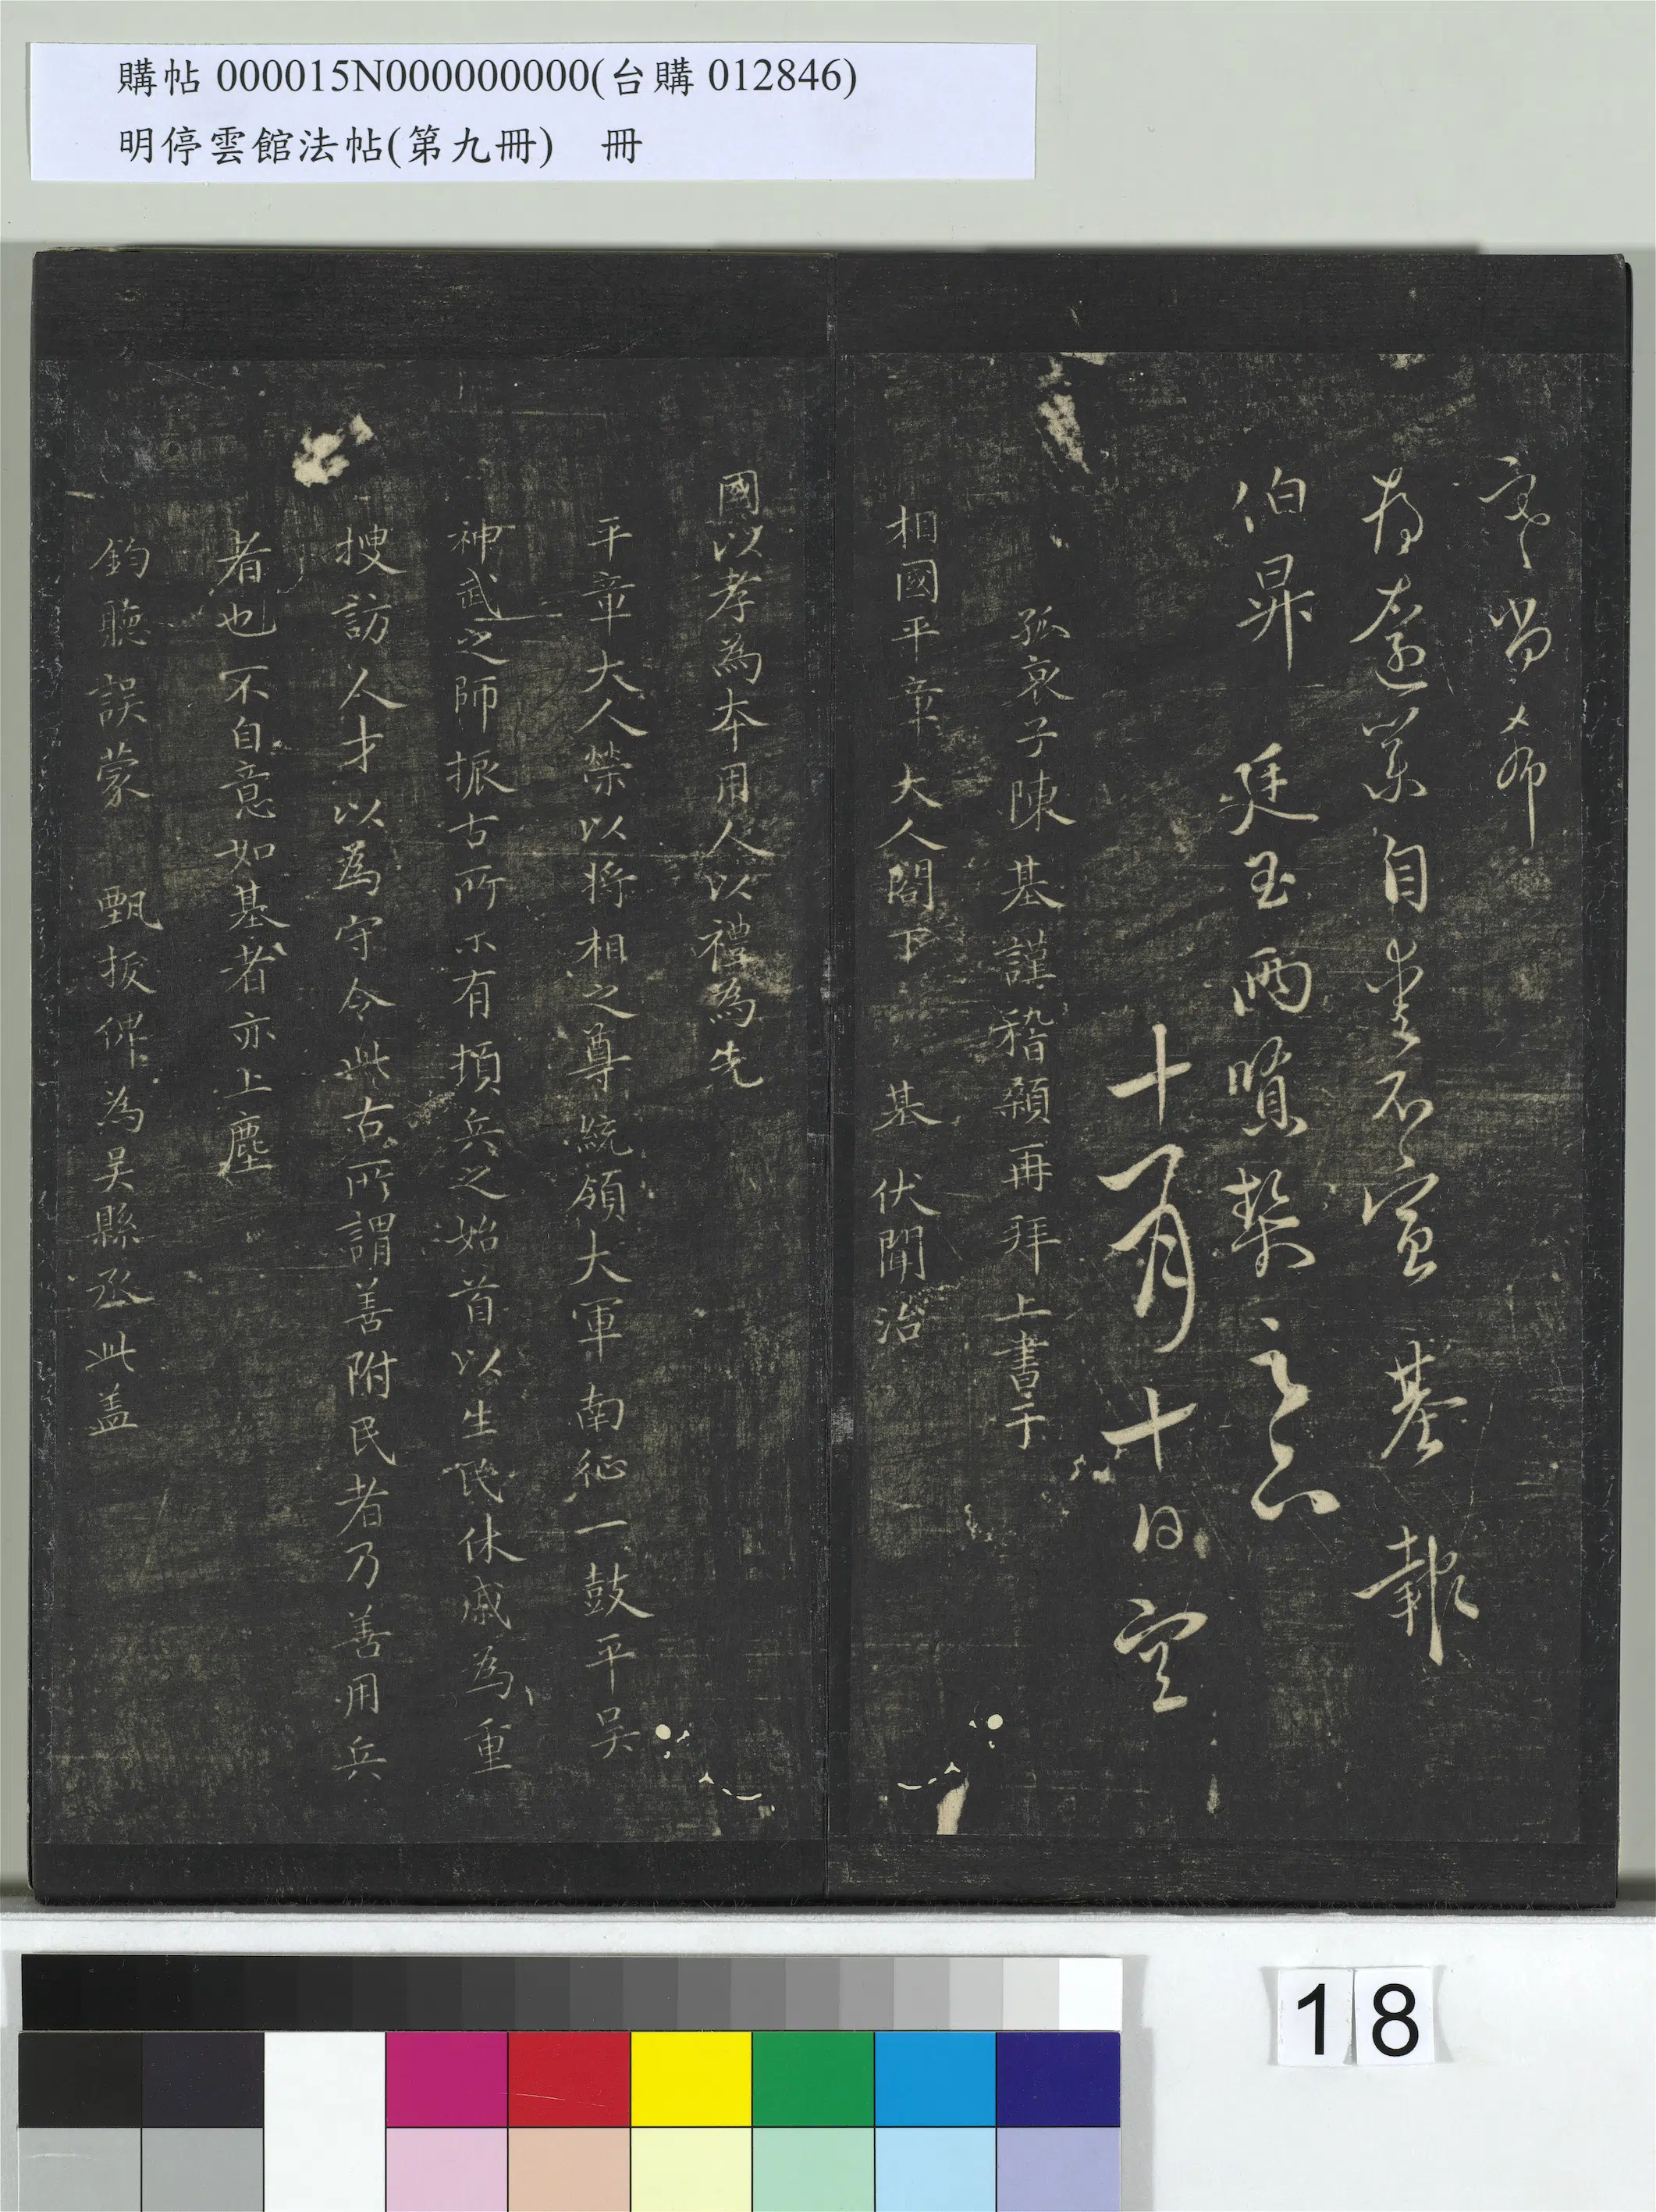 購帖 000015N000000000(台購 012846)
明停雲館法帖(第九冊)　冊
當希
自重不宣　基　報
伯昇　廷玉兩賢契之上
十月十日空
孤哀子陳基謹稽顙再拜上書于
相國平章大人閣下　基伏聞治
國以孝為本用人以禮為先
平章大人榮以將相之尊統領大軍南征一鼓平吳
神武之師振古所未有頓兵之始首以生民休戚為重
搜訪人才以為守令此古所謂善附民者乃善用兵
者也不自意如基者亦上塵
鈞聽誤蒙　甄拔俾為吳縣丞此盖
18